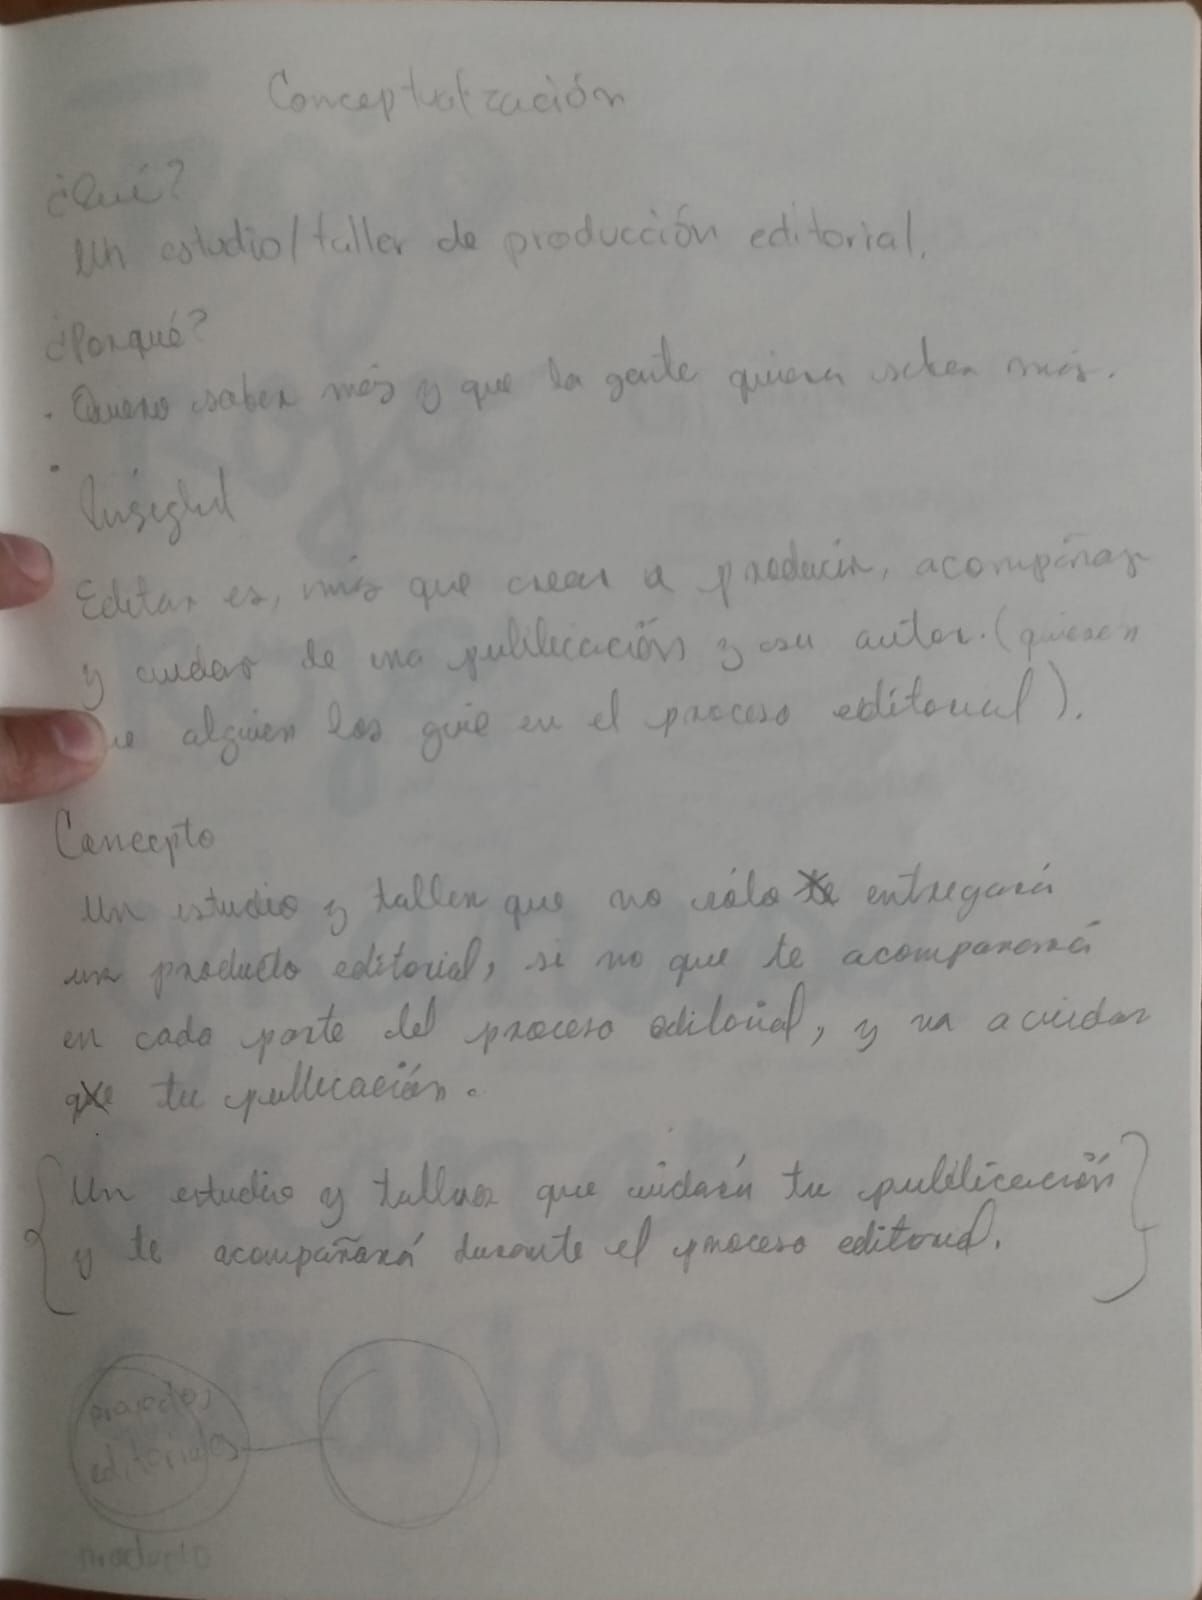 Conceptualización
¿Qué?
Un estudio/taller de producción editorial.
¿Porqué?
. Quiero saber más y que la gente quiera saber más.
.
Insight
Editar es, más que crear o producir, acompañar
y cuidar de una publicación y su autor. (quieren
que alguien los guie en el proceso editorial).
Concepto
Un estudio y taller que no sólo te entregará
un producto editorial, si no que te acompañará
en cada parte del proceso editorial, y va a cuidar
que tu publicación.
{Un estudio y taller que cuidará tu publicación
y te acompañará durante el proceso editorial.}
editoriales
producto